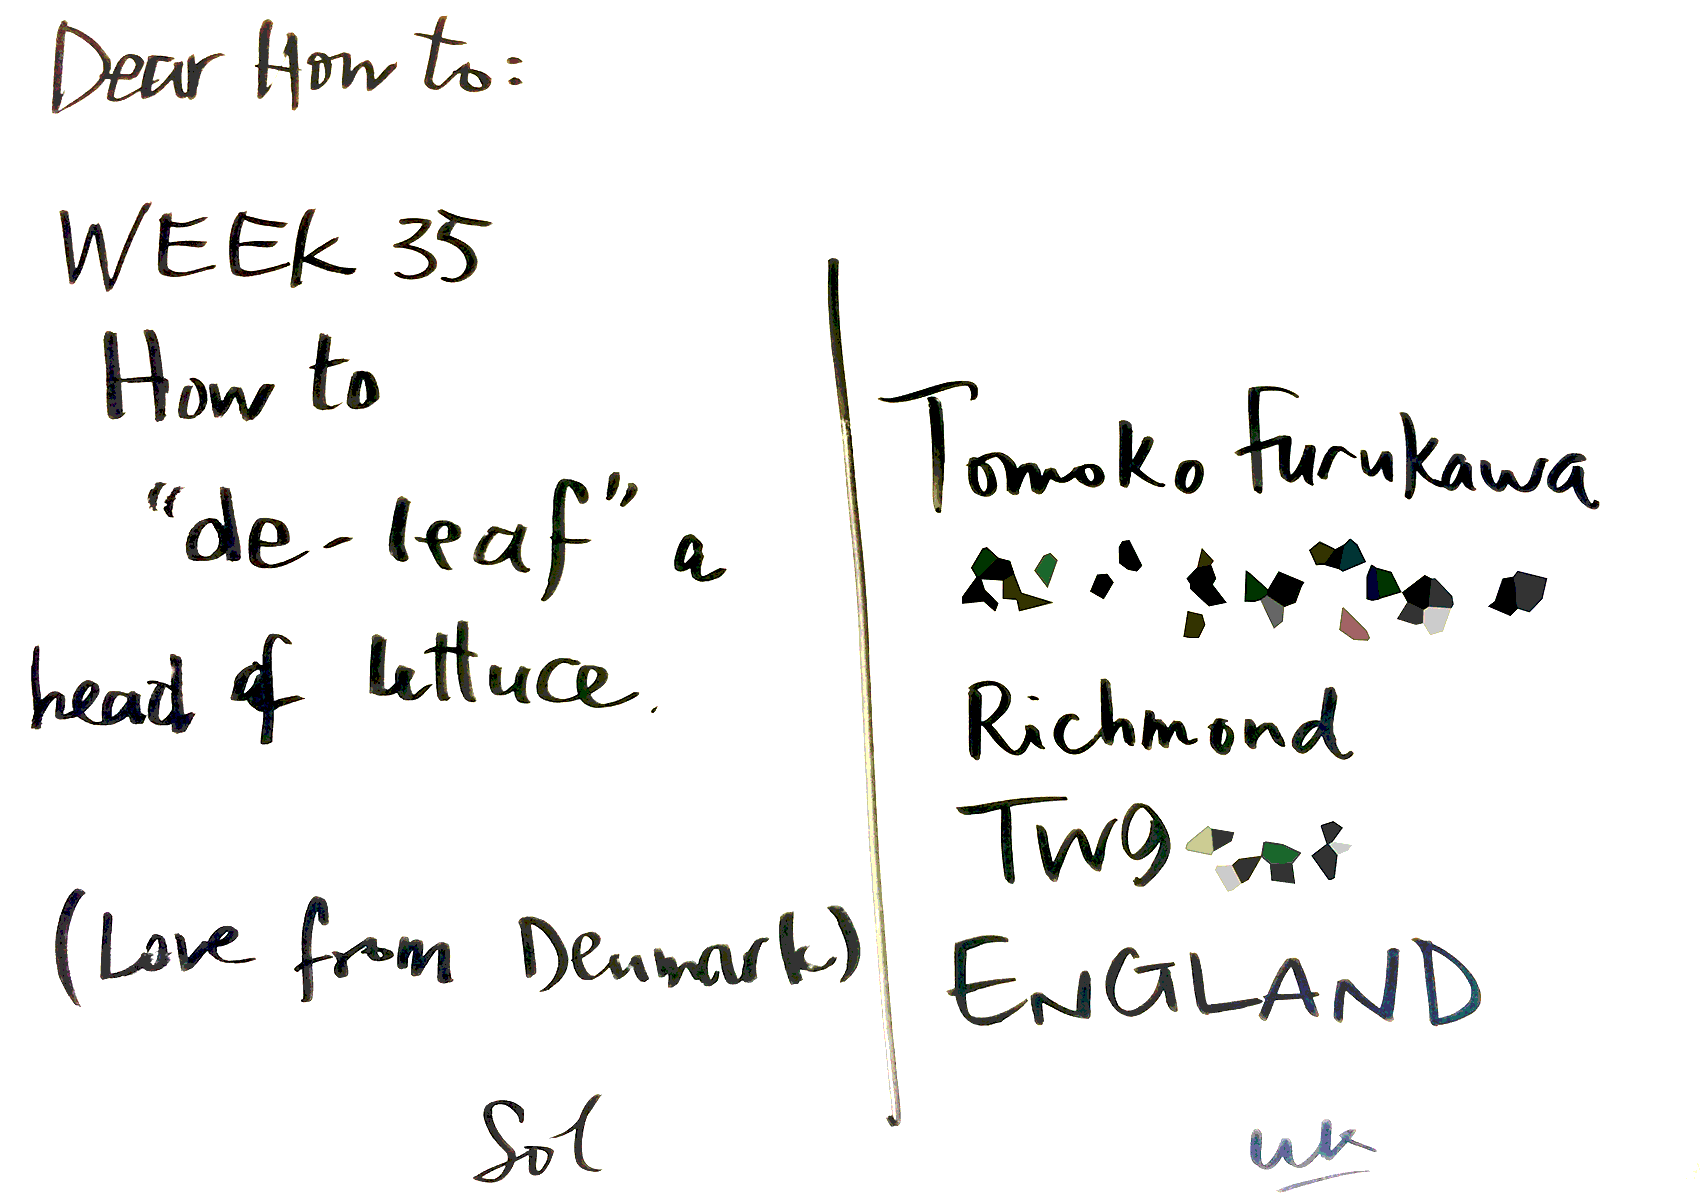 Dear How to:
WEEk 35
How to
"de-leaf" a
head of lettuce.
(Love from Denmark)
Sol
Tomoko Furukawa
Richmond
TW9
ENGLAND
UK